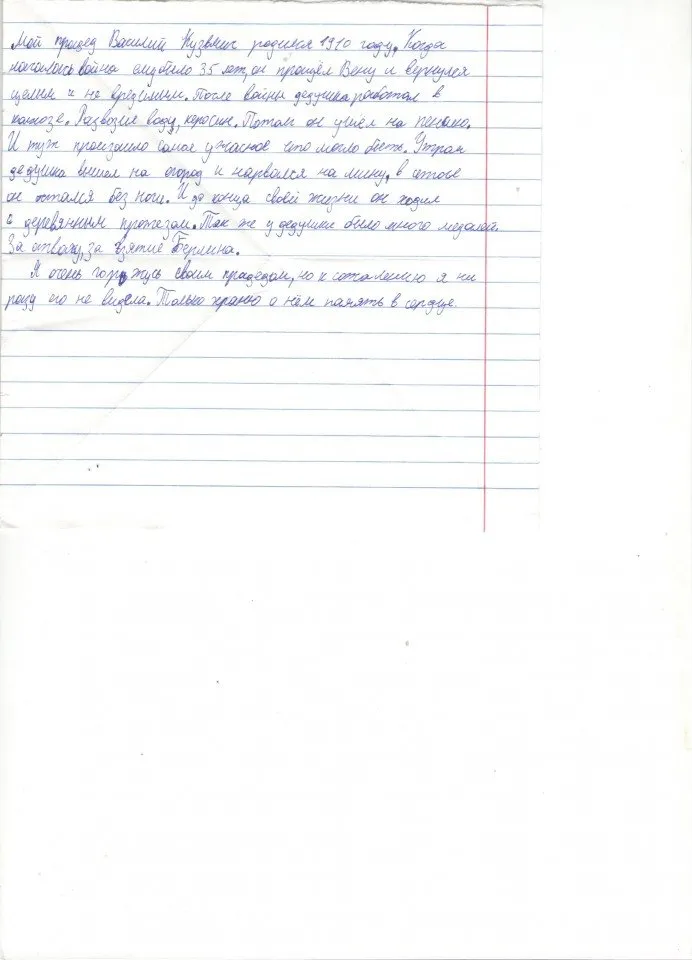 Мой прадед Василий Кузьмич родился 1910 году. Когда
началась война ему было 35 лет, он прошёл Вену и вернулся
целым и не вредимым. После войны дедушка работал в
колхозе. Развозил воду, керосин. Потом он ушёл на пенсию.
И тут произошло самое ужасное что могло быть. Утром
дедушка вышел на огород и нарвался на мину, в итоге
он остался без ноги. И до конца своей жизни он ходил
с деревянным протезом. Так же у дедушки было много медалей.
За отвагу, за взятие Берлина.
Я очень горжусь своим прадедом, но к сожалению я ни
разу его не видела. Только храню о нём память в сердце.